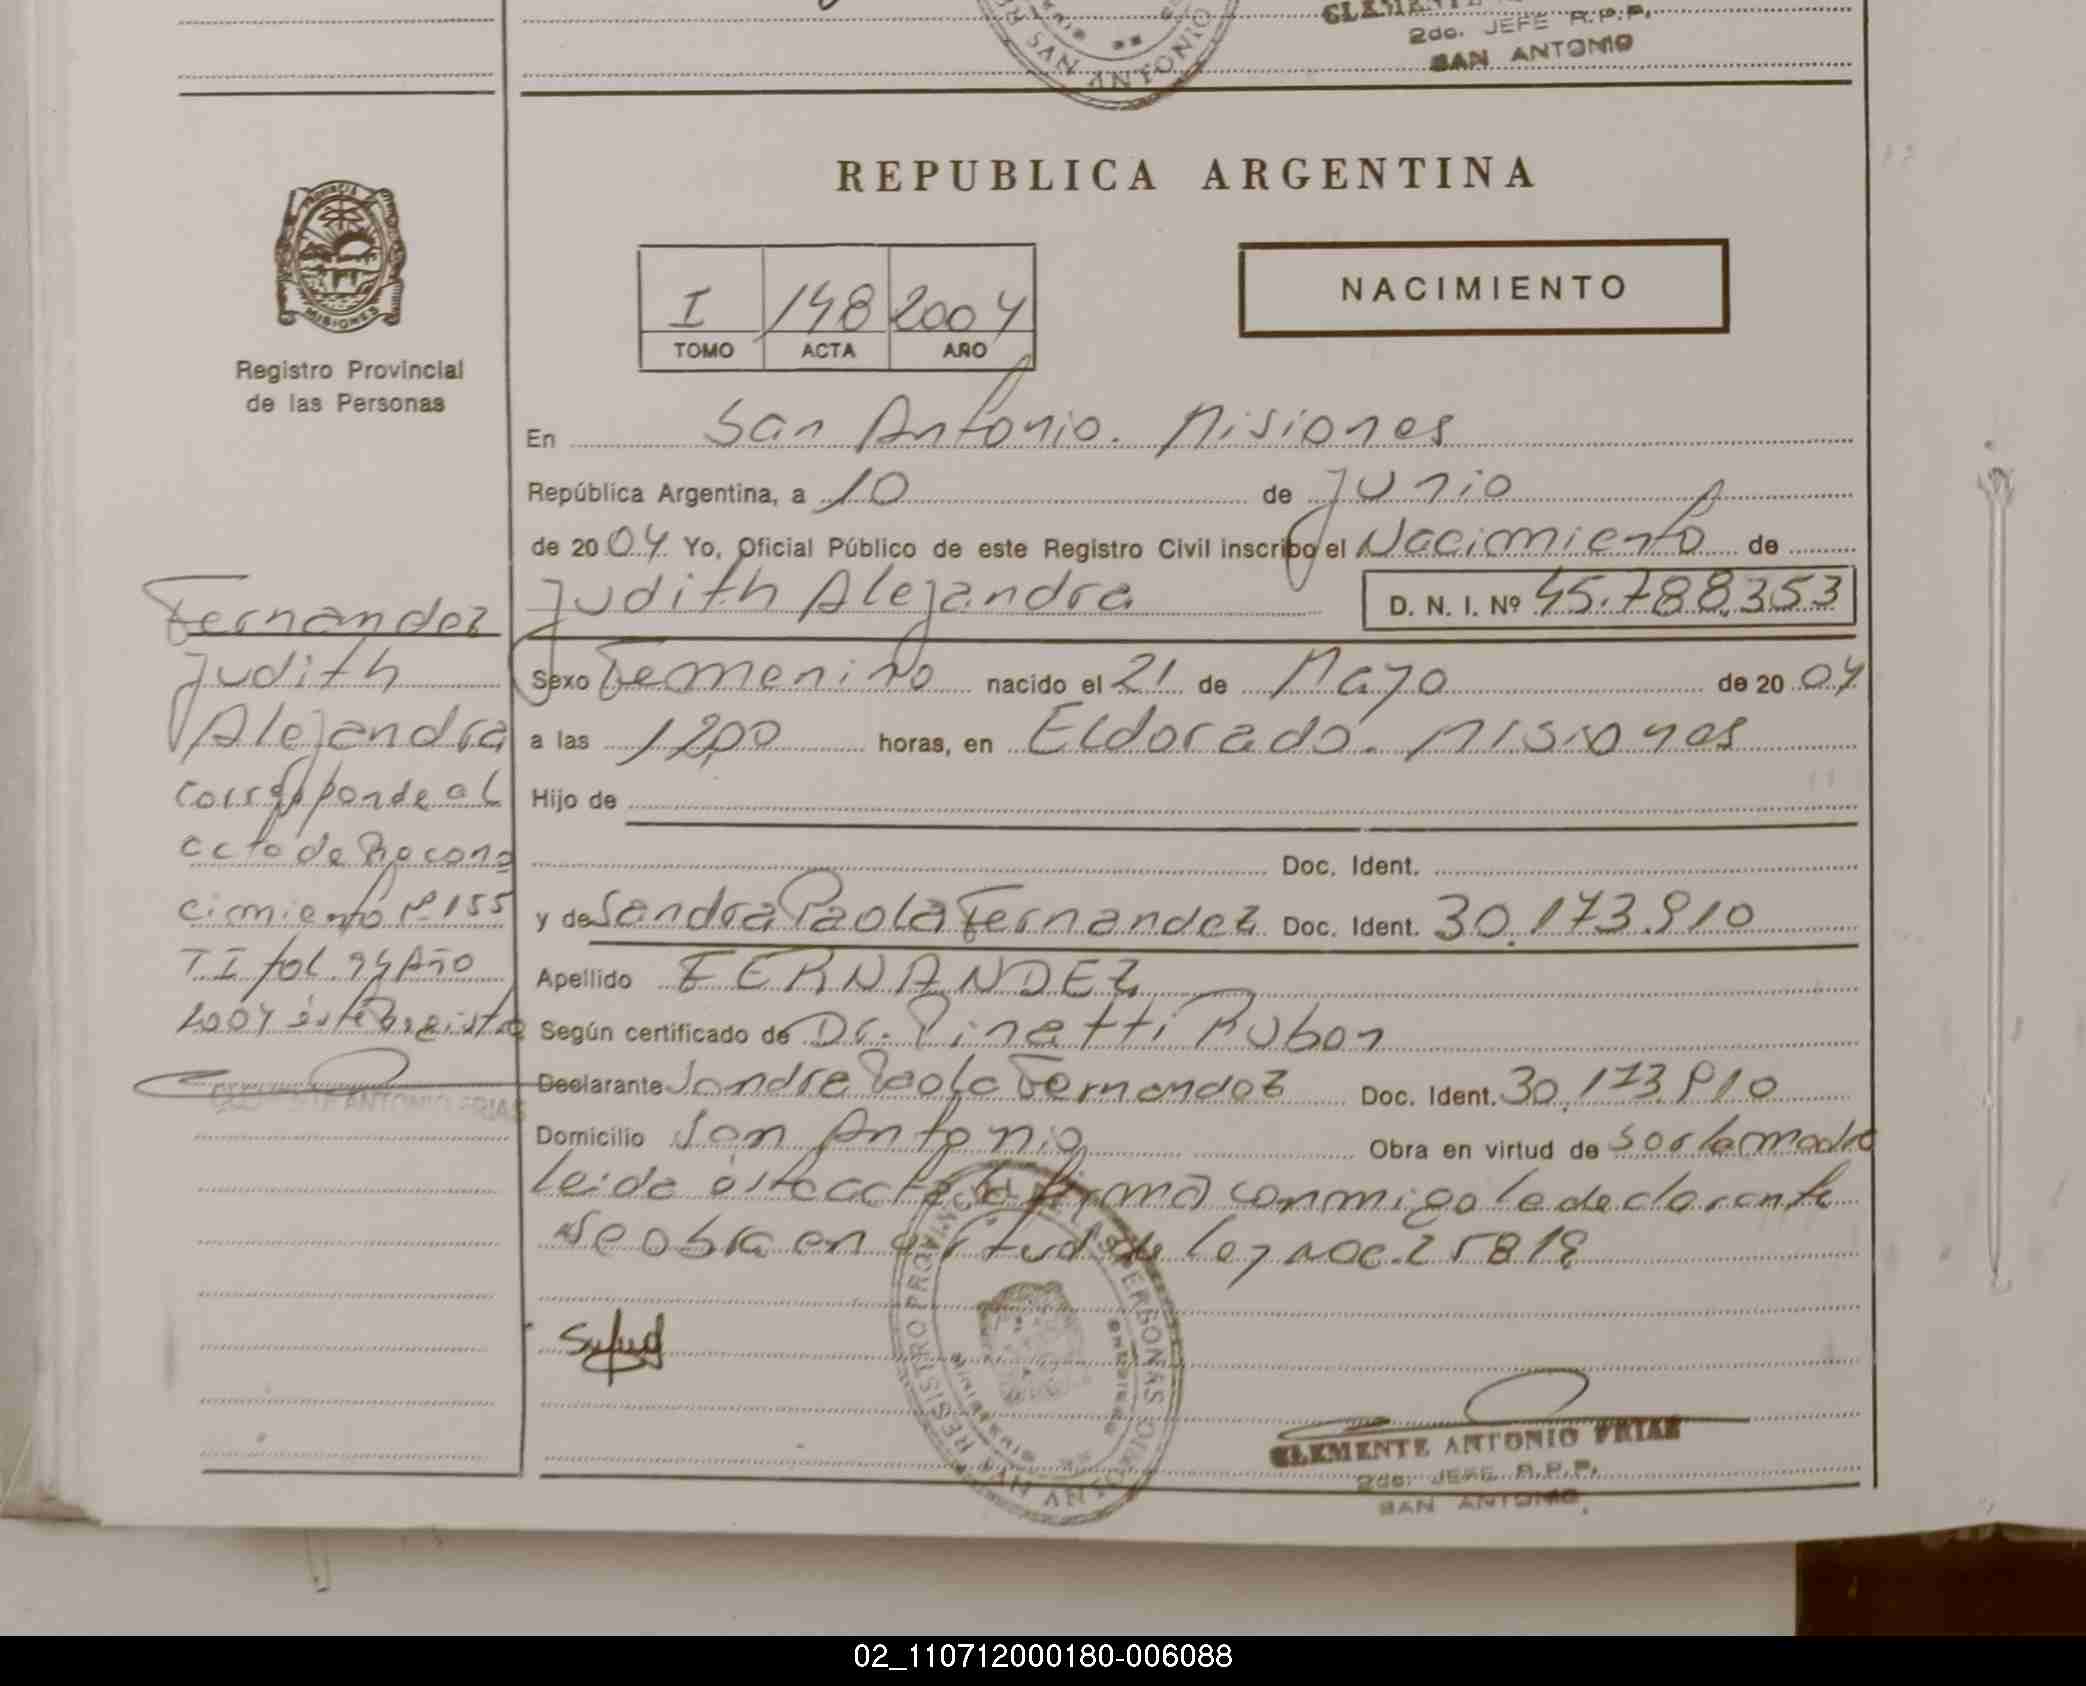 CLEMENTE
2do. JEFE R.P.P.
SAN ANTONIO
SAN ANTONIO
REPUBLICA ARGENTINA
PROVINCIA DE
MISIONES
Registro Provincial
de las Personas
I 148 2004
TOMO ACTA AÑO
NACIMIENTO
En San Antonio. Misiones
República Argentina, a 10 de Junio
de 20 04 Yo, Oficial Público de este Registro Civil inscribo el Nacimiento de
Judith Alejandra D. N. I. Nº 45.788.353
Sexo Femenino nacido el 21 de Mayo de 20 04
a las 12,00 horas, en Eldorado. Misiones
Hijo de
Doc. Ident.
y de Sandra Paola Fernandez Doc. Ident. 30.173.910
Apellido FERNANDEZ
Según certificado de Dr. Pinatti Ruben
Declarante Sandra Paola Fernandez Doc. Ident. 30.173.910
Domicilio San Antonio Obra en virtud de ser la madre
leida esta acta la firma conmigo la declarante
se obra en virtud de ley nac. 25819
Fernandez
Judith
Alejandra
Corresponde al
acta de Recono
cimiento Nº 155
T.I fol. 94 Año
2004 éste Registro
CLEMENTE ANTONIO FRIAS
REGISTRO PROVINCIAL DE LAS PERSONAS
SAN ANTONIO
CLEMENTE ANTONIO FRIAS
2do. JEFE R.P.P.
SAN ANTONIO
02_110712000180-006088